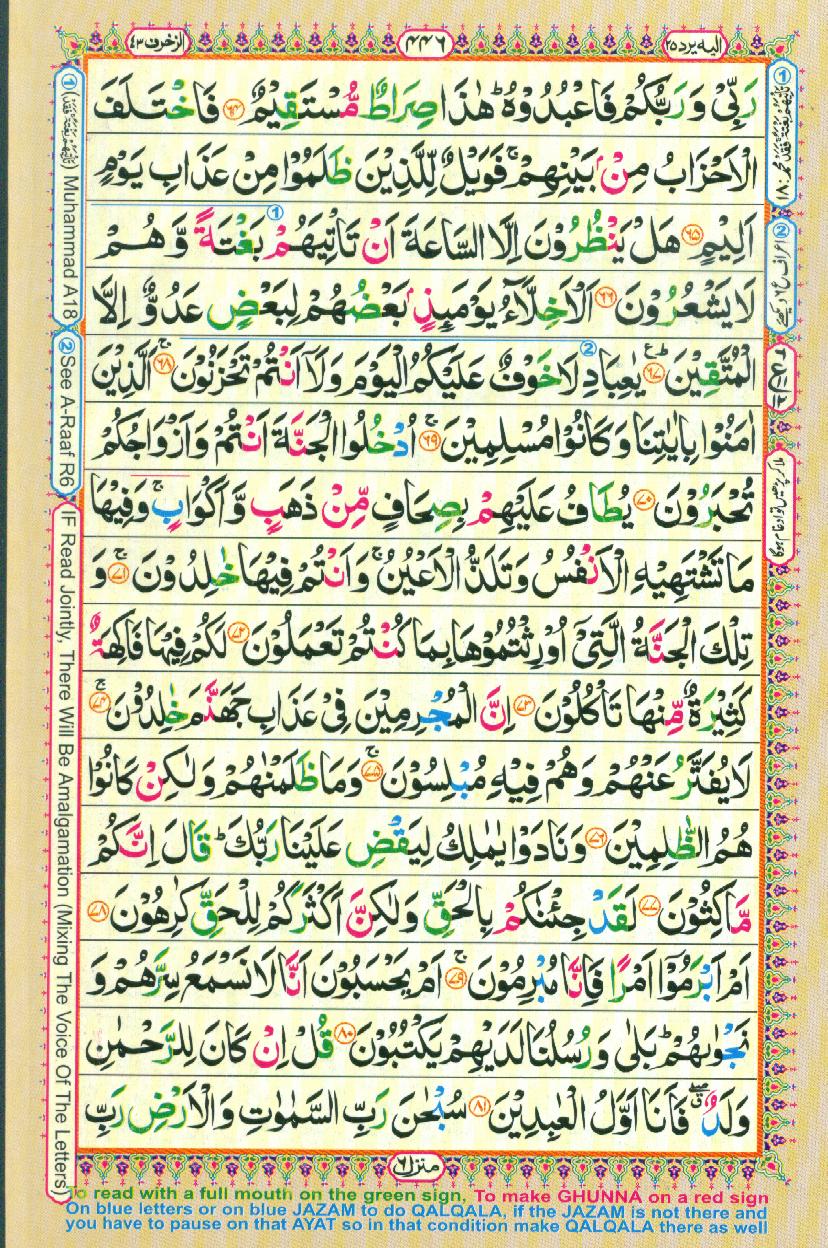 اليه يرد ٢٥
٤٤٦
الزخرف ٤٣
رَبِّىْ وَرَبُّكُمْ فَاعْبُدُوْهُ ؕ هٰذَا صِرَاطٌ مُّسْتَقِيْمٌ ﴿۶۴﴾ فَاخْتَلَفَ
الْاَحْزَابُ مِنْۢ بَيْنِهِمْ ۚ فَوَيْلٌ لِّلَّذِيْنَ ظَلَمُوْا مِنْ عَذَابِ يَوْمٍ
اَلِيْمٍ ﴿۶۵﴾ هَلْ يَنْظُرُوْنَ اِلَّا السَّاعَةَ اَنْ تَاْتِيَهُمْ بَغْتَةً وَّهُمْ
لَا يَشْعُرُوْنَ ﴿۶۶﴾ اَلْاَخِلَّآءُ يَوْمَىِٕذٍۭ بَعْضُهُمْ لِبَعْضٍ عَدُوٌّ اِلَّا
الْمُتَّقِيْنَ ﴿۶۷﴾ يٰعِبَادِ لَا خَوْفٌ عَلَيْكُمُ الْيَوْمَ وَلَاۤ اَنْتُمْ تَحْزَنُوْنَ ﴿۶۸﴾ اَلَّذِيْنَ
اٰمَنُوْا بِاٰيٰتِنَا وَكَانُوْا مُسْلِمِيْنَ ﴿۶۹﴾ اُدْخُلُوا الْجَنَّةَ اَنْتُمْ وَاَزْوَاجُكُمْ
تُحْبَرُوْنَ ﴿۷۰﴾ يُطَافُ عَلَيْهِمْ بِصِحَافٍ مِّنْ ذَهَبٍ وَّاَكْوَابٍ ۚ وَفِيْهَا
مَا تَشْتَهِيْهِ الْاَنْفُسُ وَتَلَذُّ الْاَعْيُنُ ۚ وَاَنْتُمْ فِيْهَا خٰلِدُوْنَ ﴿۷۱﴾ وَ
تِلْكَ الْجَنَّةُ الَّتِىْۤ اُوْرِثْتُمُوْهَا بِمَا كُنْتُمْ تَعْمَلُوْنَ ﴿۷۲﴾ لَكُمْ فِيْهَا فَاكِهَةٌ
كَثِيْرَةٌ مِّنْهَا تَاْكُلُوْنَ ﴿۷۳﴾ اِنَّ الْمُجْرِمِيْنَ فِىْ عَذَابِ جَهَنَّمَ خٰلِدُوْنَ ﴿۷۴﴾
لَا يُفَتَّرُ عَنْهُمْ وَهُمْ فِيْهِ مُبْلِسُوْنَ ﴿۷۵﴾ وَمَا ظَلَمْنٰهُمْ وَلٰكِنْ كَانُوْا
هُمُ الظّٰلِمِيْنَ ﴿۷۶﴾ وَنَادَوْا يٰمٰلِكُ لِيَقْضِ عَلَيْنَا رَبُّكَ ؕ قَالَ اِنَّكُمْ
مّٰكِثُوْنَ ﴿۷۷﴾ لَقَدْ جِئْنٰكُمْ بِالْحَقِّ وَلٰكِنَّ اَكْثَرَكُمْ لِلْحَقِّ كٰرِهُوْنَ ﴿۷۸﴾
اَمْ اَبْرَمُوْۤا اَمْرًا فَاِنَّا مُبْرِمُوْنَ ﴿۷۹﴾ اَمْ يَحْسَبُوْنَ اَنَّا لَا نَسْمَعُ سِرَّهُمْ وَ
نَجْوٰىهُمْ ؕ بَلٰى وَرُسُلُنَا لَدَيْهِمْ يَكْتُبُوْنَ ﴿۸۰﴾ قُلْ اِنْ كَانَ لِلرَّحْمٰنِ
وَلَدٌ ۖ فَاَنَا اَوَّلُ الْعٰبِدِيْنَ ﴿۸۱﴾ سُبْحٰنَ رَبِّ السَّمٰوٰتِ وَالْاَرْضِ رَبِّ
منزل ٦
① Muhammad A18
② See A-Raaf R6
IF Read Jointly, There Will Be Amalgamation (Mixing The Voice Of The Letters)
To read with a full mouth on the green sign, To make GHUNNA on a red sign
On blue letters or on blue JAZAM to do QALQALA, if the JAZAM is not there and
you have to pause on that AYAT so in that condition make QALQALA there as well